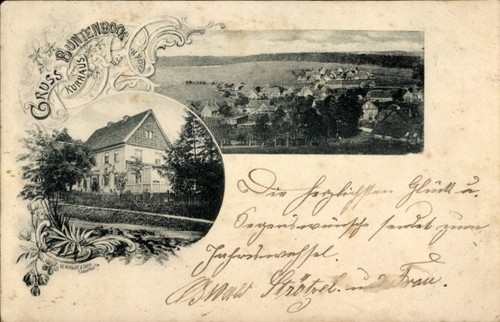 GRUSS
BUNTENBOCK
KURHAUS
Die herzlichsten Glück u.
Segenswünsche sendet zum
Jahreswechsel.
Oswald Strötzel und Frau.